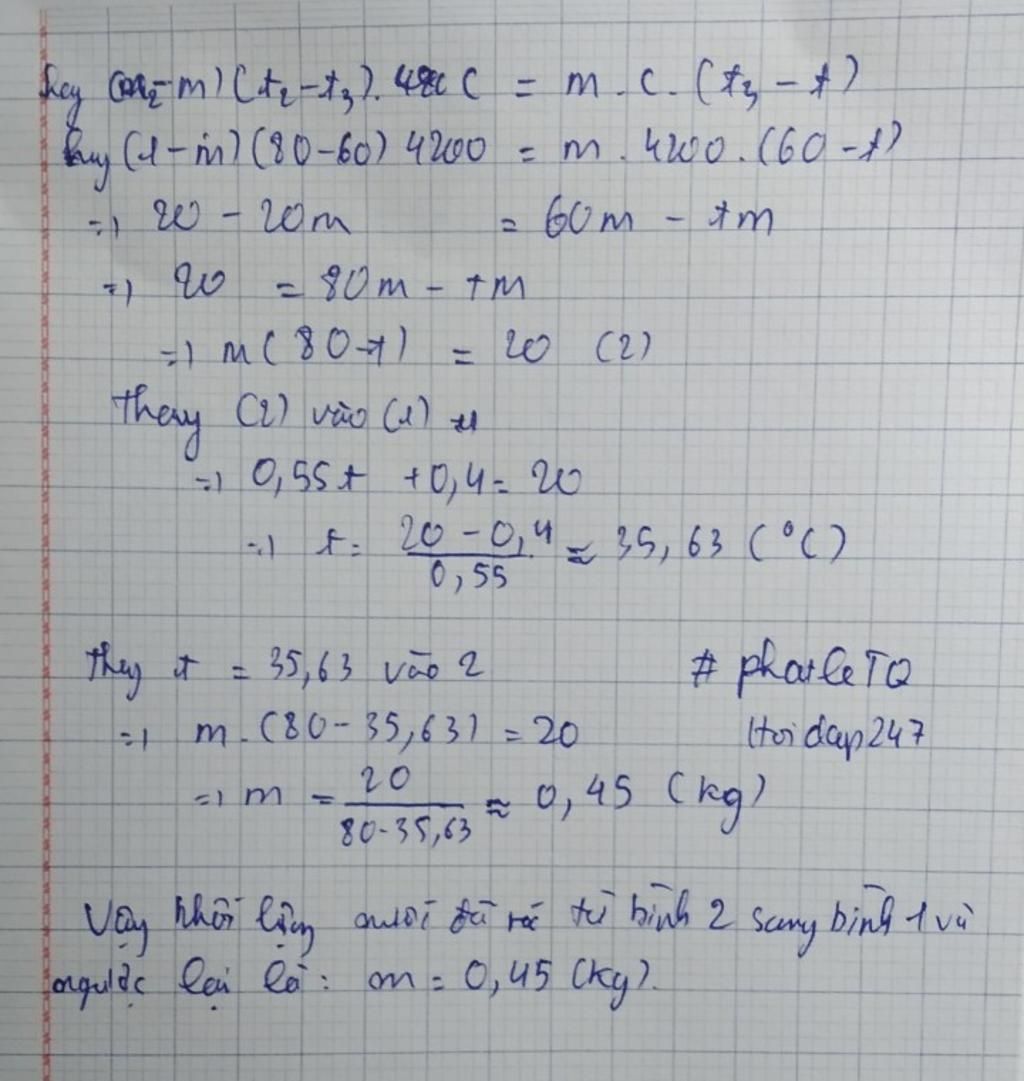 hay (m₂-m)(t₂-t₃). C = m . c . (t₃ - t)
hay (1-m)(80-60) 4200 = m . 4200 . (60-t)
=> 20 - 20m = 60m - tm
=> 20 = 80m - tm
=> m(80-t) = 20 (2)
thay (2) vào (1)
=> 0,55t + 0,4 = 20
=> t = (20 - 0,4)/0,55 ≈ 35,63 (°C)
thay t = 35,63 vào 2
# phatleTQ
=> m . (80 - 35,63) = 20
Hoidap247
=> m = 20/(80-35,63) ≈ 0,45 (kg)
Vậy khối lượng nước đã rót từ bình 2 sang bình 1 và
ngược lại là : m = 0,45 (kg).